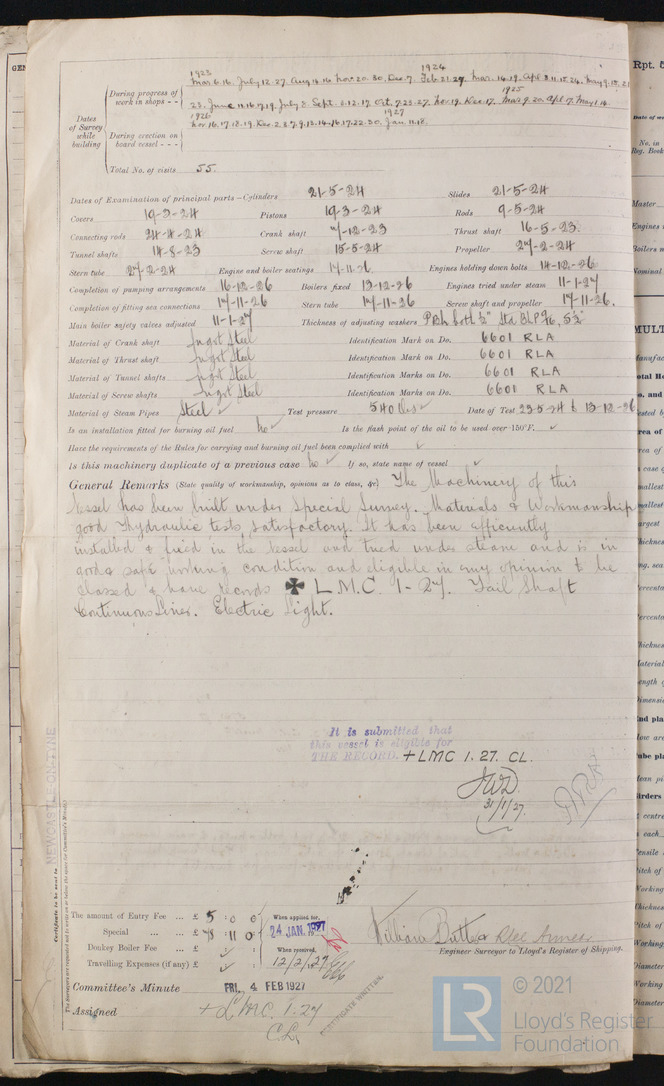 1923 1924
Mar 6.16. July 12.27. Aug 14.16 Nov 20.30. Dec. 7. Feb. 21.29. Mar. 14.19. Apl 8.11.15.24. May 9.15.21
During progress of work in shops - -
1925
23. June 11.16.17.19. July 8. Sept. 6.12.17. Oct. 7.23.27. Nov. 19. Dec. 17. Mar 9.20. Apl 7. May 1.14.
1926 1927
Dates of Survey while building
Nov 16.17.18.19. Dec. 2.3.7.9.13.14.16.17.22.30. Jan. 11.18.
During erection on board vessel - - -
Total No. of visits 55.
Dates of Examination of principal parts—Cylinders 21-5-24 Slides 21-5-24
Covers 19-3-24 Pistons 19-3-24 Rods 9-5-24
Connecting rods 24-4-24 Crank shaft 7-12-23 Thrust shaft 16-5-23
Tunnel shafts 14-8-23 Screw shaft 15-5-24 Propeller 27-2-24
Stern tube 27-2-24 Engine and boiler seatings 17-11-26 Engines holding down bolts 14-12-26
Completion of pumping arrangements 16-12-26 Boilers fixed 13-12-26 Engines tried under steam 11-1-27
Completion of fitting sea connections 17-11-26 Stern tube 17-11-26 Screw shaft and propeller 17-11-26.
Main boiler safety valves adjusted 11-1-27 Thickness of adjusting washers
Material of Crank shaft Ingot Steel Identification Mark on Do. 6601 RLA
Material of Thrust shaft Ingot Steel Identification Mark on Do. 6601 RLA
Material of Tunnel shafts Ingot Steel Identification Marks on Do. 6601 RLA
Material of Screw shafts Ingot Steel Identification Marks on Do. 6601 RLA
Material of Steam Pipes Steel ✓ Test pressure 540 lbs ✓ Date of Test 23-5-24 to 13-12-26
Is an installation fitted for burning oil fuel no ✓ Is the flash point of the oil to be used over 150°F. ✓
Have the requirements of the Rules for carrying and burning oil fuel been complied with ✓
Is this machinery duplicate of a previous case no ✓ If so, state name of vessel ✓
General Remarks (State quality of workmanship, opinions as to class, &c) The Machinery of this
Vessel has been built under Special Survey. Materials & Workmanship
good Hydraulic tests satisfactory. It has been efficiently
installed & fixed in the Vessel and tried under steam and is in
good & safe working condition and eligible in my opinion to be
classed & have records ✠ L.M.C. 1-27. Tail Shaft
Continuous Liner. Electric Light.
It is submitted that
this vessel is eligible for
THE RECORD. + LMC 1.27. CL.
31/1/27.
NEWCASTLE-ON-TYNE
Certificate to be sent to
The Surveyors are requested not to write on or below the space for Committee's Minute.
The amount of Entry Fee ... £ 5 : 0 : 0 When applied for,
Special ... £ 78 : 11 : 0 24 JAN. 1927
Donkey Boiler Fee ... £ ✓ When received,
Travelling Expenses (if any) £ ✓ 12/2/27
William Butler
Engineer Surveyor to Lloyd's Register of Shipping.
Committee's Minute FRI. 4 FEB 1927
Assigned + LMC 1.27
CL
CERTIFICATE WRITTEN.
LR © 2021
Lloyd's Register
Foundation
Rpt. 5